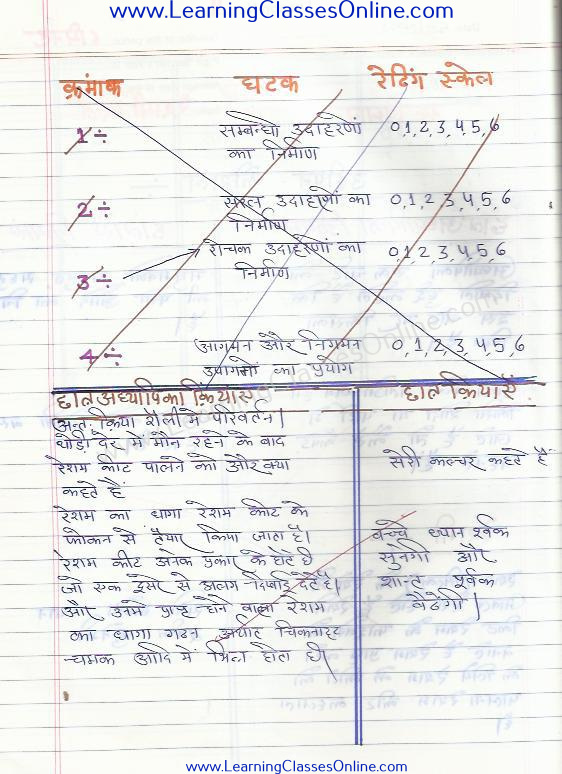 www.LearningClassesOnline.com
क्रंमाक घटक रेटिंग स्केल
1÷ सम्बन्धी उदाहरणों 0,1,2,3,4,5,6
का निर्माण
2÷ सरल उदाहरणों का 0,1,2,3,4,5,6
निर्माण
3÷ रोचक उदाहरणों का 0,1,2,3,4,5,6
निर्माण
4÷ आगमन और निगमन 0,1,2,3,4,5,6
उपागमों का प्रयोग
छात्रअध्यापिका क्रियाएं छात्र क्रियाएं
अन्तः क्रिया शैली में परिवर्तन।
थोड़ी देर में मौन रहने के बाद
रेशम कीट पालने को और क्या सेरी कल्चर कहते हैं
कहते हैं
रेशम का धागा रेशम कीट के
कोकन से तैयार किया जाता है। बच्चे ध्यान पूर्वक
रेशम कीट अनेक प्रकार के होते हैं सुनेगी और
जो एक दूसरे से अलग दिखाई देते हैं। शान्त पूर्वक
और उनमें प्राप्त होने वाला रेशम बैठेगी।
का धागा गठन अर्थात चिकनाहट
चमक आदि में भिन्न होता है।
www.LearningClassesOnline.com